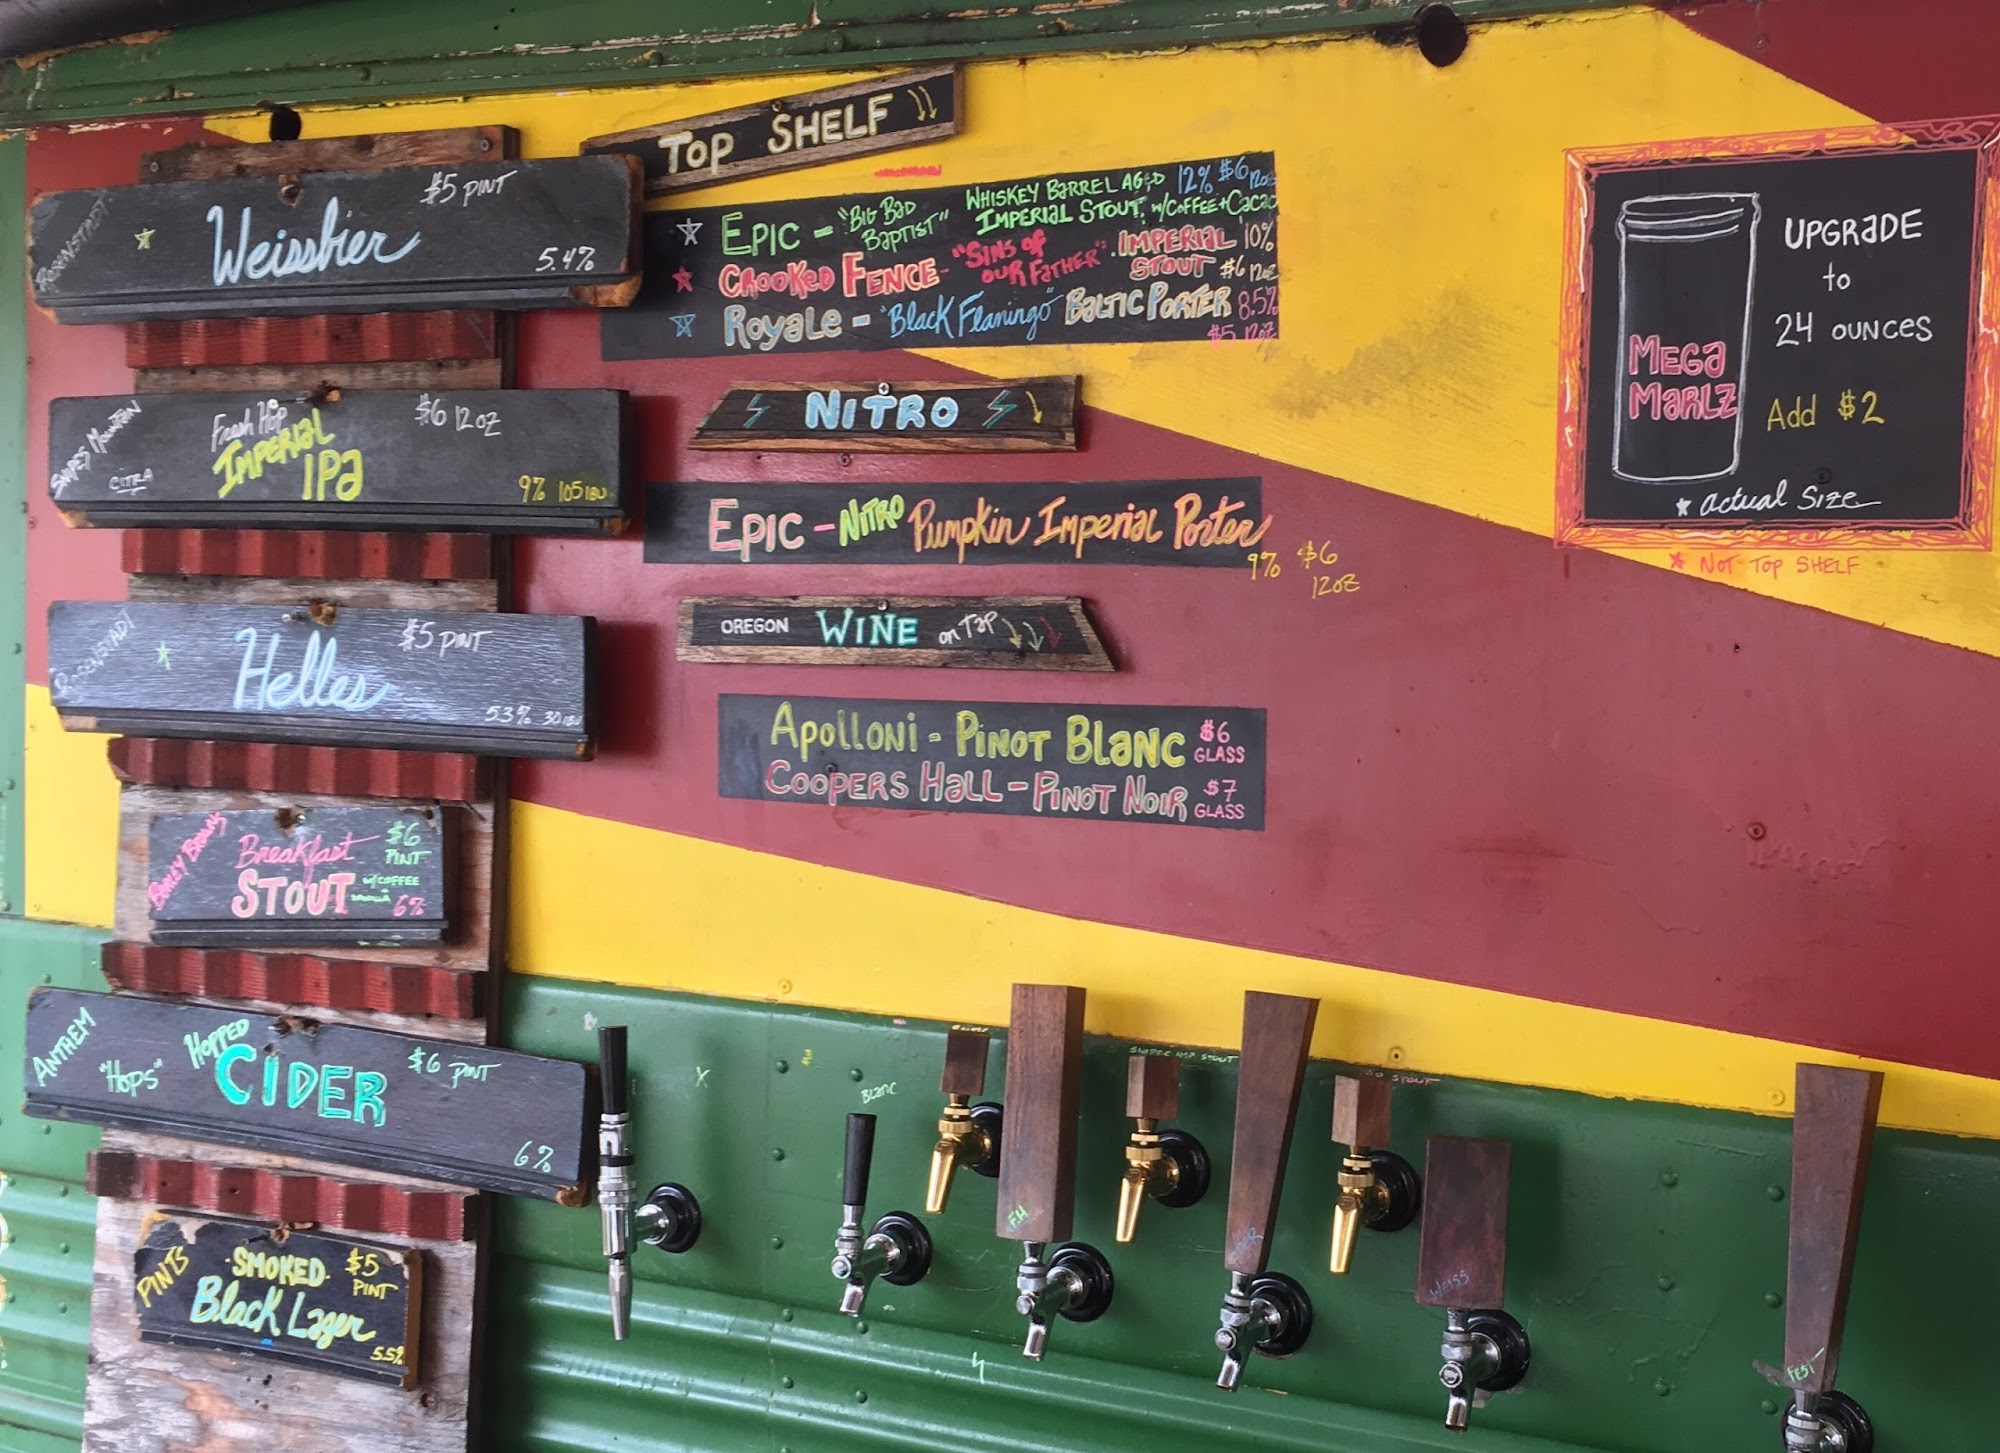 ROSENSTADT
Weissbier
$5 PINT
5.4%
SNIPES MOUNTAIN
CITRA
Fresh Hop
IMPERIAL
IPa
$6 12OZ
9% 105 IBU
ROSENSTADT
Helles
$5 PINT
5.3% 30 IBU
BARLEY BROWNS
Breakfast
STOUT
$6
PINT
w/COFFEE
+
VANILLA
6%
ANTHEM
"HOPS"
HOPPED
CIDER
$6 PINT
6%
PINTS
SMOKED
Black Lager
$5
PINT
5.5%
TOP SHELF
EPIC - "BIG BaD BaPTIST" WHISKEY BARREL AGED IMPERIAL STOUT. w/COFFEE+CaCaO 12% $6 12oz
CROOKED FENCE - "SINS OF OUR FATHER". IMPERIAL STOUT 10% $6 12oz
ROYALE - "Black Flamingo" BALTIC PORTER 8.5% $5 12oz
NITRO
EPIC - NITRO Pumpkin Imperial Porter
9% $6
12oz
OREGON WINE on Tap
APOLLONI - PINOT BLANC $6 GLASS
COOPERS HALL - PINOT NOIR $7 GLASS
MEGA
MARLZ
UPGRADE
to
24 OUNCES
Add $2
* actual Size
* NOT TOP SHELF
BLANC
SNIPER IMP. STOUT
STOUT
F.H
CIDER
WEISS
FEST